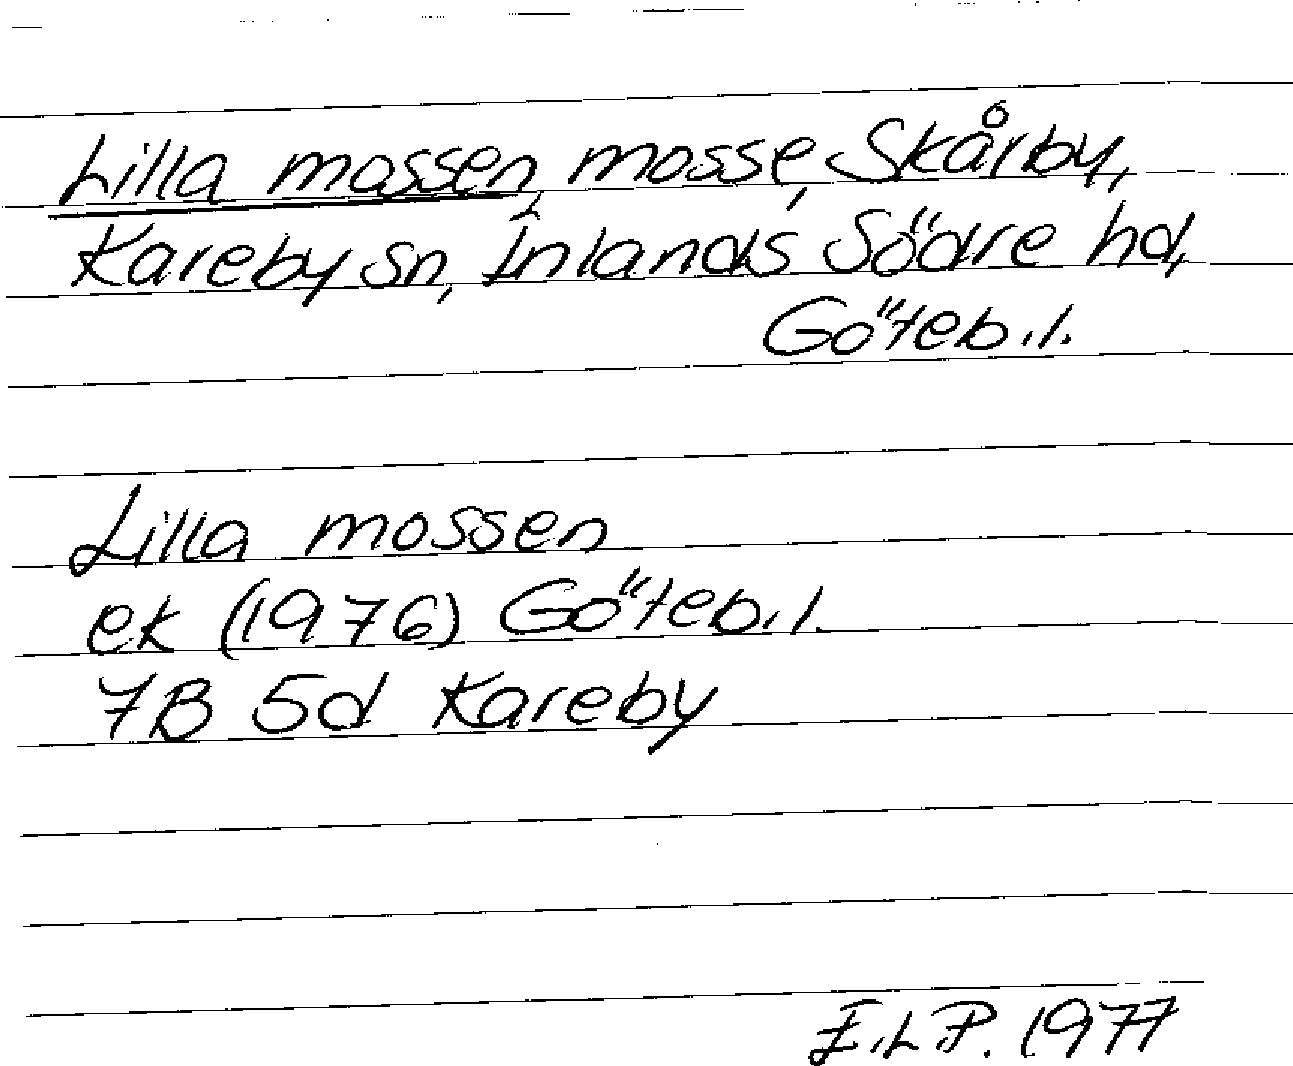 Lilla mossen, mosse, Skårby,
Kareby sn, Inlands Södre hd,
Göteb.l.
Lilla mossen
ek (1976) Göteb.l.
7B 5d Kareby
E.L.P. 1977